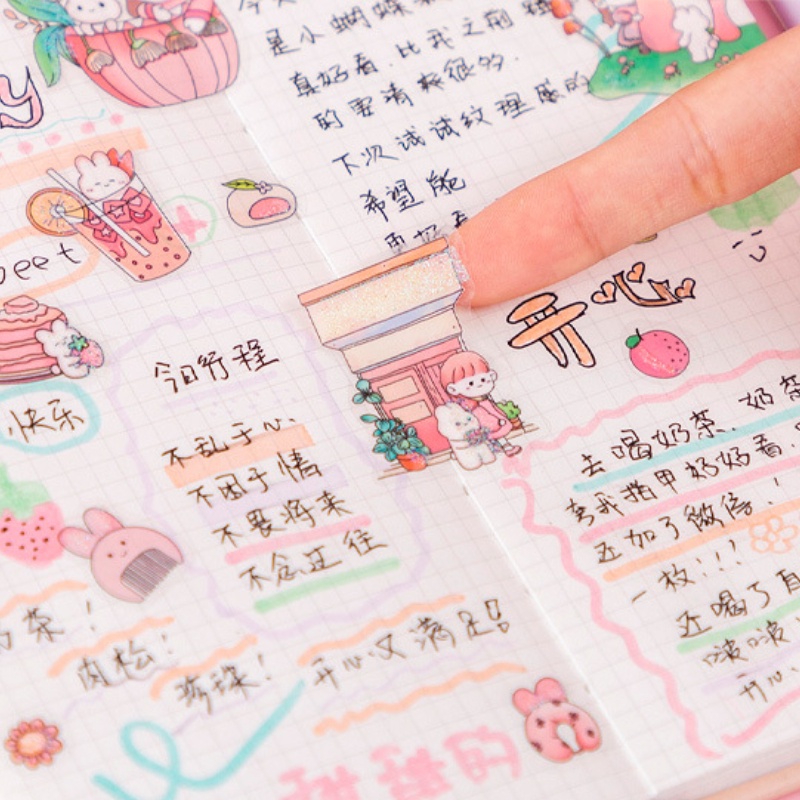 y
weet
快乐
今日行程
不乱于心.
不困于情
不畏将来
不念过往
奶茶!
肉松!
珍珠!
开心又满足!
是小蝴蝶
真好看.比我之前
的要清爽很多.
下次试试纹理感的
希望能
更好看
开心
去喝奶茶.奶茶
夸我指甲好好看.
还加了微信!
一枚!!!
还喝了
啵啵
开心